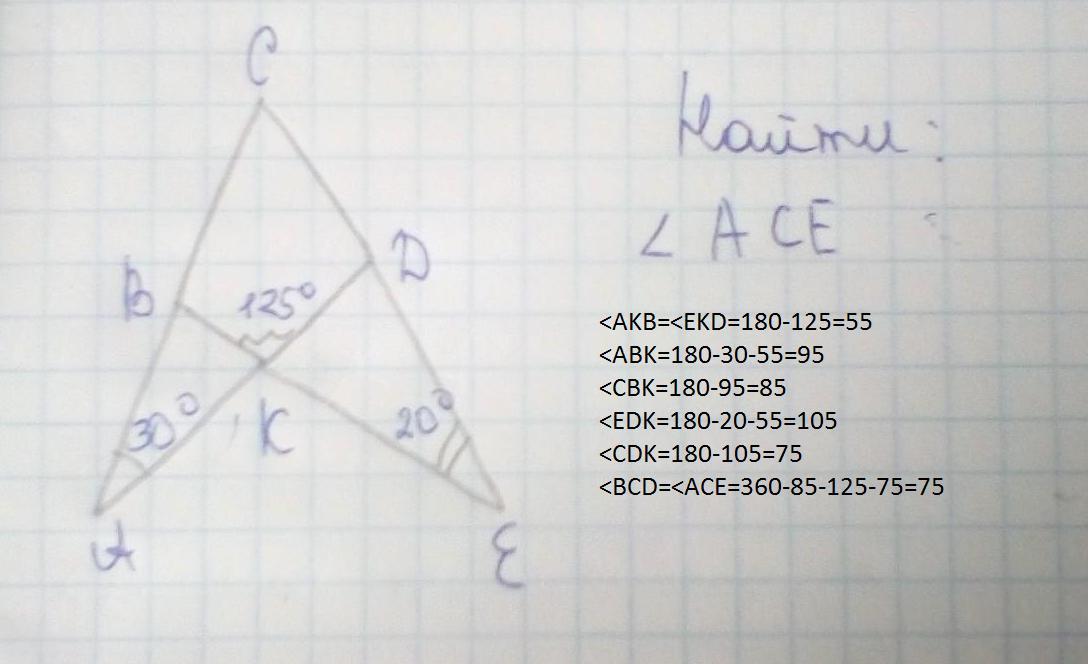 C
Найти:
∠ ACE
B
D
125°
<AKB=<EKD=180-125=55
<ABK=180-30-55=95
<CBK=180-95=85
<EDK=180-20-55=105
<CDK=180-105=75
<BCD=<ACE=360-85-125-75=75
30°
K
20°
A
E